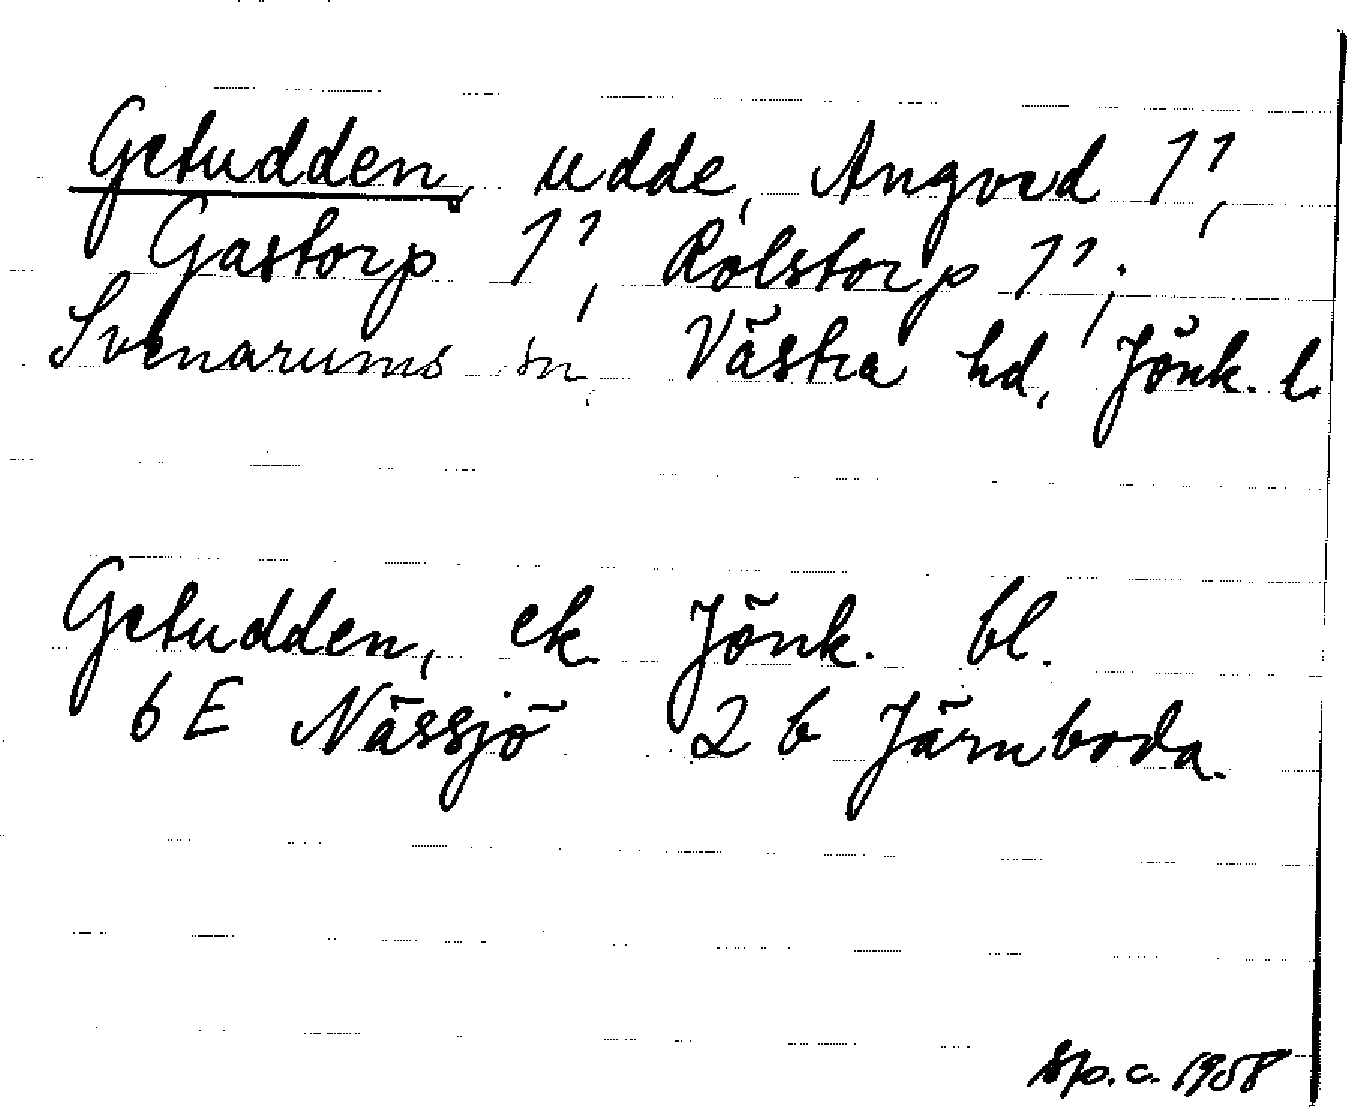 Getudden, udde, Angved 1¹,
Gastorp 1¹, Rolstorp 1¹;
Svenarums sn, Västra hd, Jönk. l.
Getudden, ek. Jönk. bl.
6 E Nässjö 2 b Järnboda.
Sp. c. 1958